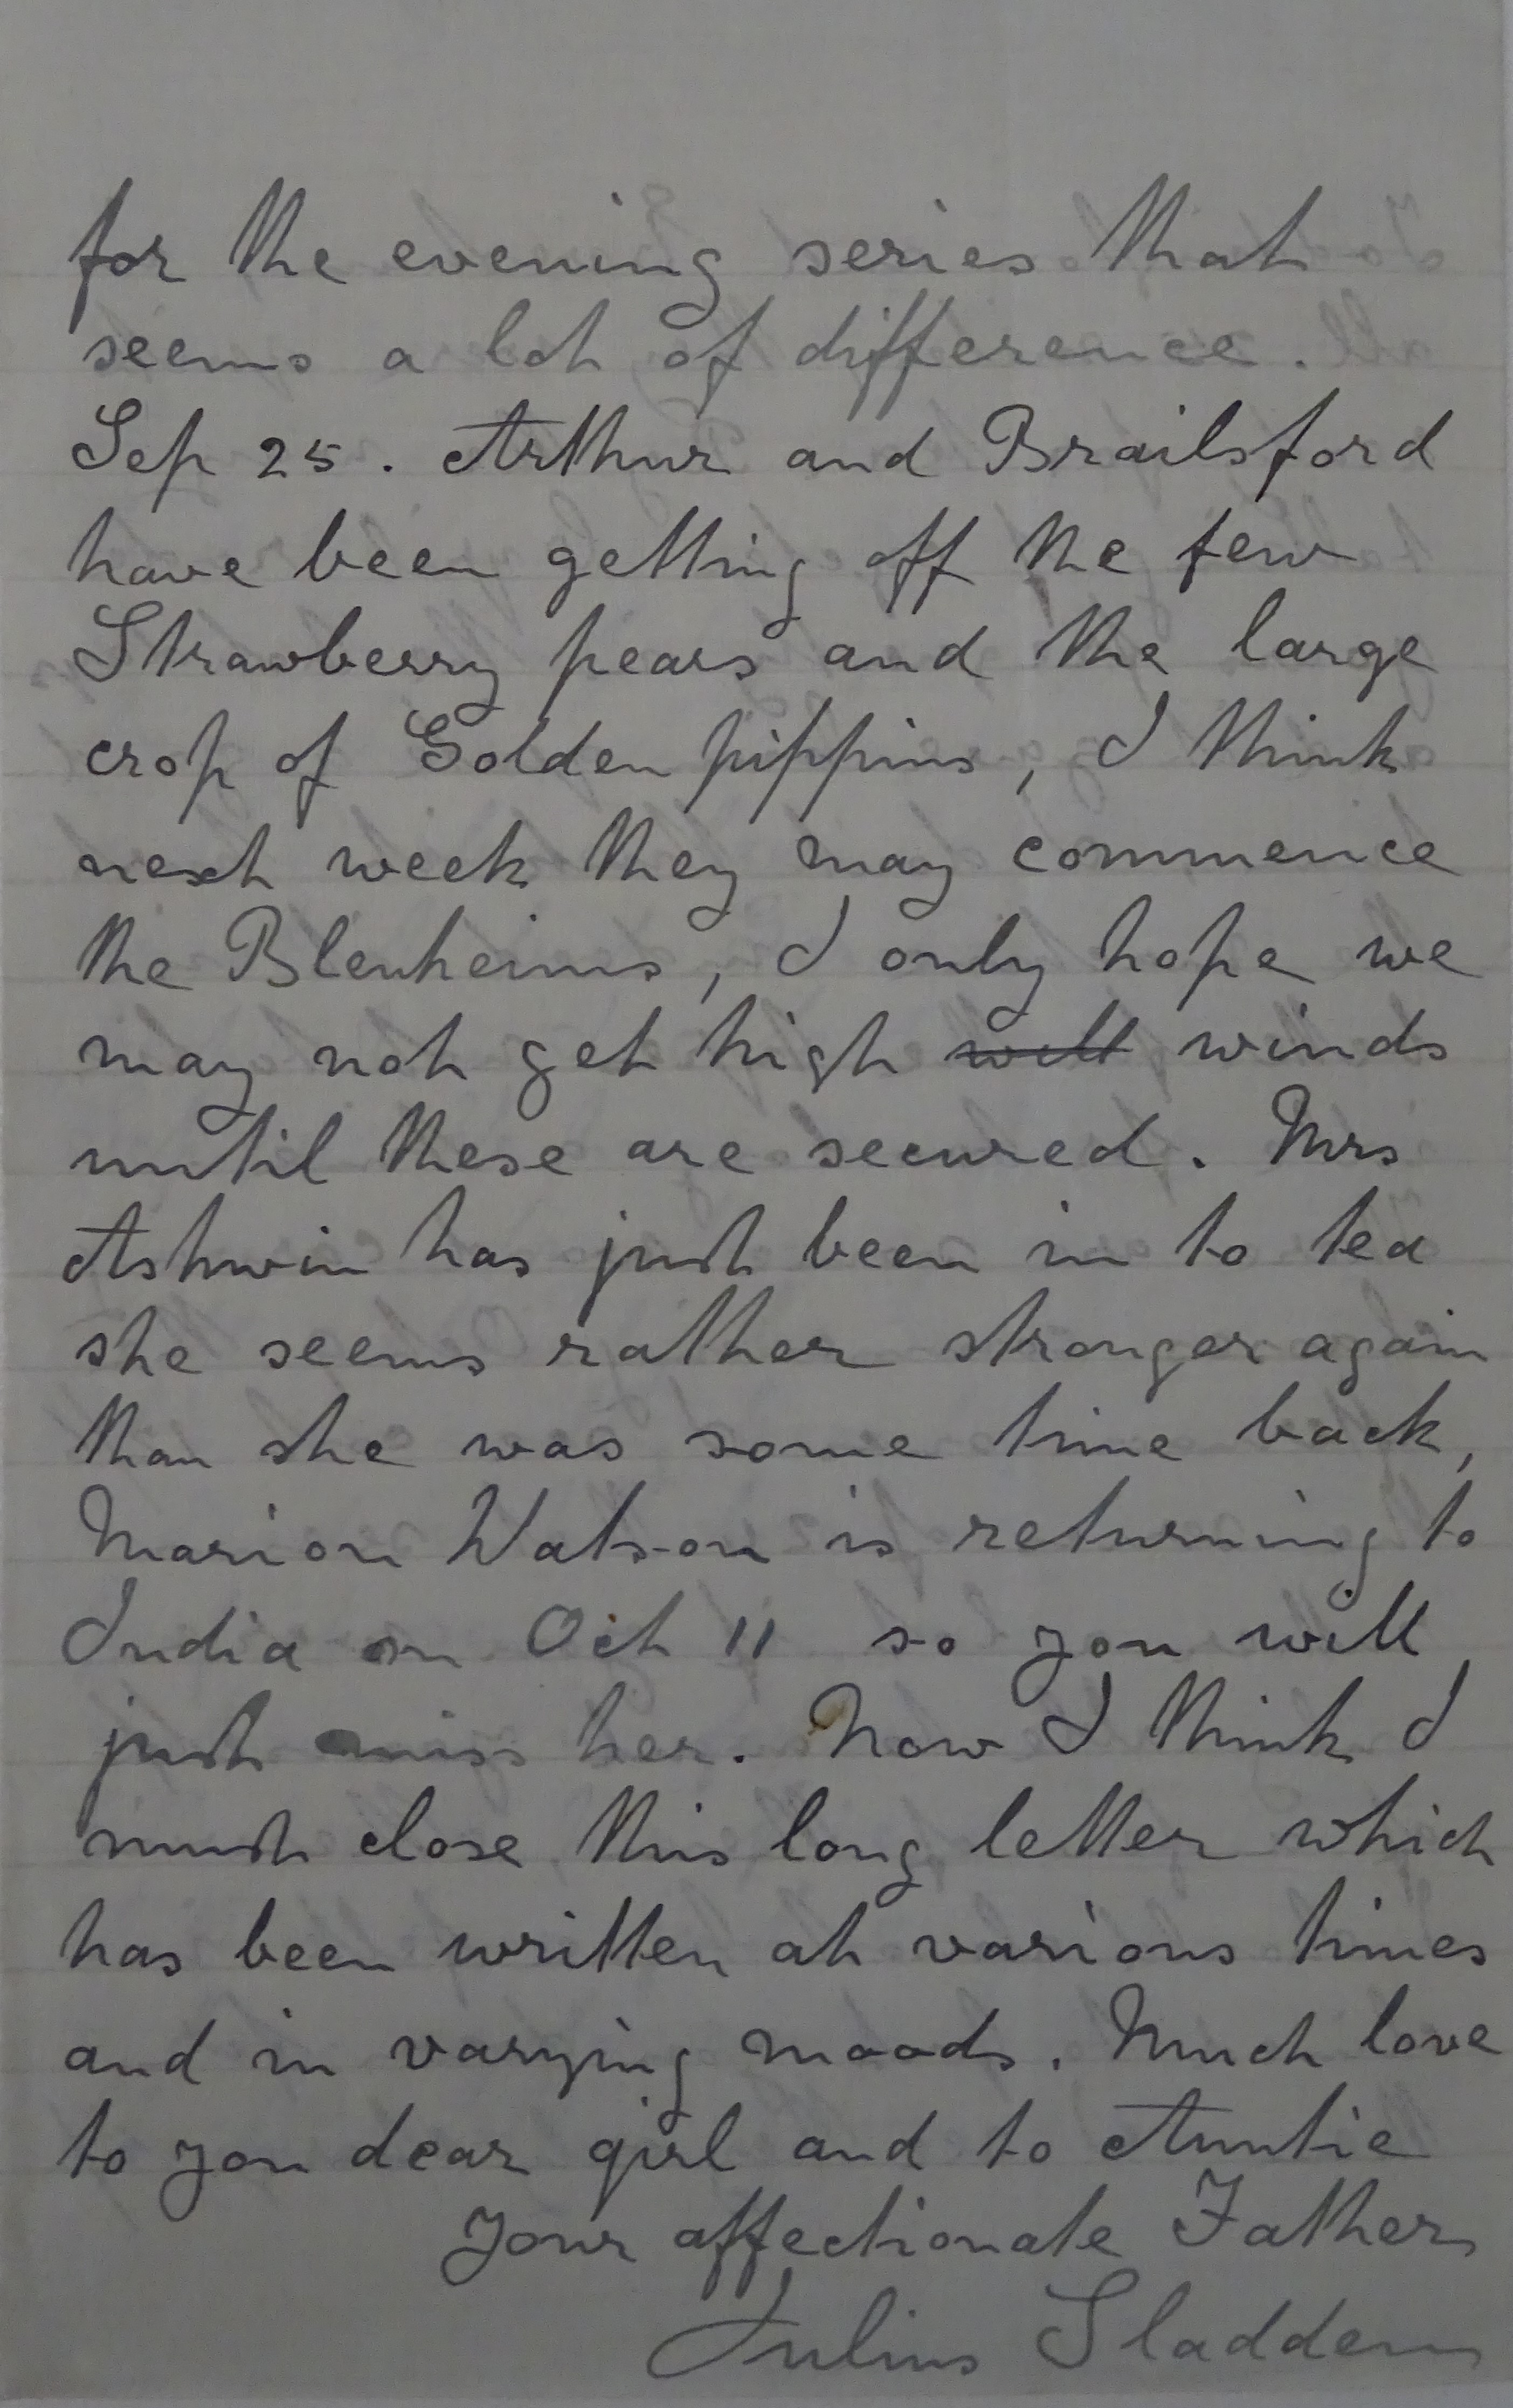 for the evening series that
seems a lot of difference.
Sep 25. Arthur and Brailsford
have been getting off the few
Strawberry pears and the large
crop of Golden pippins, I think
next week they may commence
the Blenheims, I only hope we
may not get high will winds
until these are secured. Mrs
Ashwin has just been in to tea
she seems rather stronger again
than she was some time back,
Marion Watson is returning to
India on Oct 11 so you will
just miss her. Now I think I
must close this long letter which
has been written at various times
and in varying moods. Much love
to you dear girl and to Auntie
Your affectionate Father
Julius Sladden